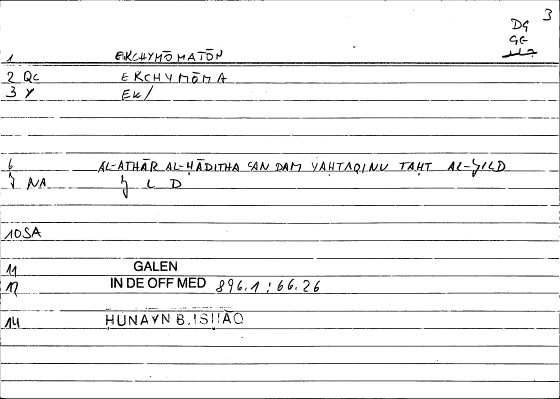 3
DG
GG
1 EKCHYMŌMATŌN
2 QC EKCHYMŌMA
3 Y EK/
6 AL-ATHĀR AL-ḤĀDITHA CAN DAM YAḤTAQINU TAḤT AL-ǦILD
7 NA Ǧ L D
10 SA
11 GALEN
12 IN DE OFF MED 896.1 : 66.26
14 ḤUNAYN B. ISḤĀQ